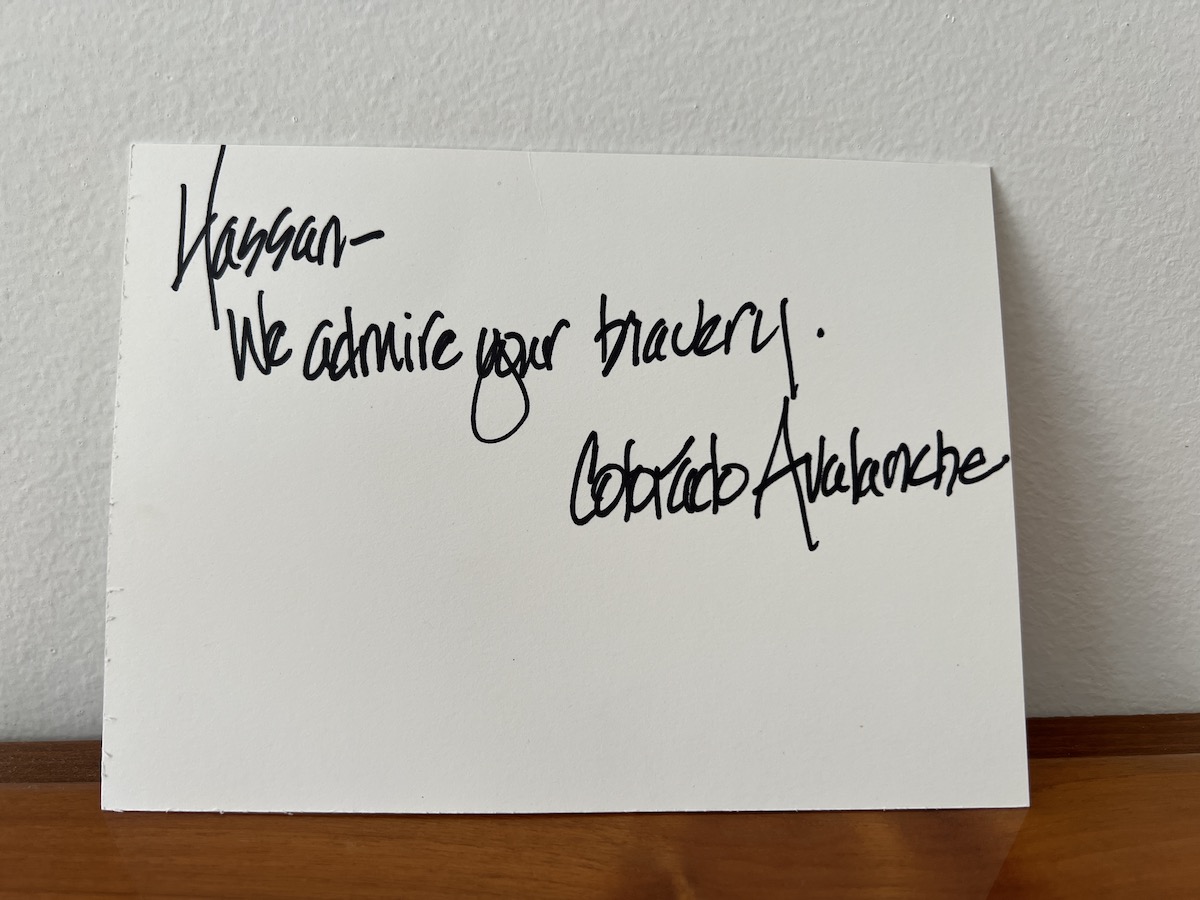 Hassan-
We admire your bravery.
Colorado Avalanche